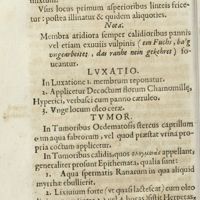 Usus locus primum asperioribus linteis frice
tur: postea illinatur & quidem aliquoties.
Nota.
Membra atidiora semper calidioribus pannis
vel etiam exuuiis vulpinis (
vngearbeitet, das rauhe nein gekehret) fo-
ueantur.
LVXATIO.
In Luxatione 1. membrum reponatur.
2. Applicetur Decoctum florum Chamomillę,
Hyperici, verbasci cum panno cæruleo.
3. Vnge locum oleo ceræ.
TVMOR.
In Tumoribus Oedematosis stercus capillum
cum aqua fabrorum, vel quod præstat vrina pro-
pria coctum applicetur.
In Tumoribus calidis, quos appellant,
generaliter possunt Epithemata, qualia sunt:
1. Aqua spermatis Ranarum in qua aliquid
myrrhæ ebullierit.
2. Lixiuium forte (vt quasi lactescat) cum oleo